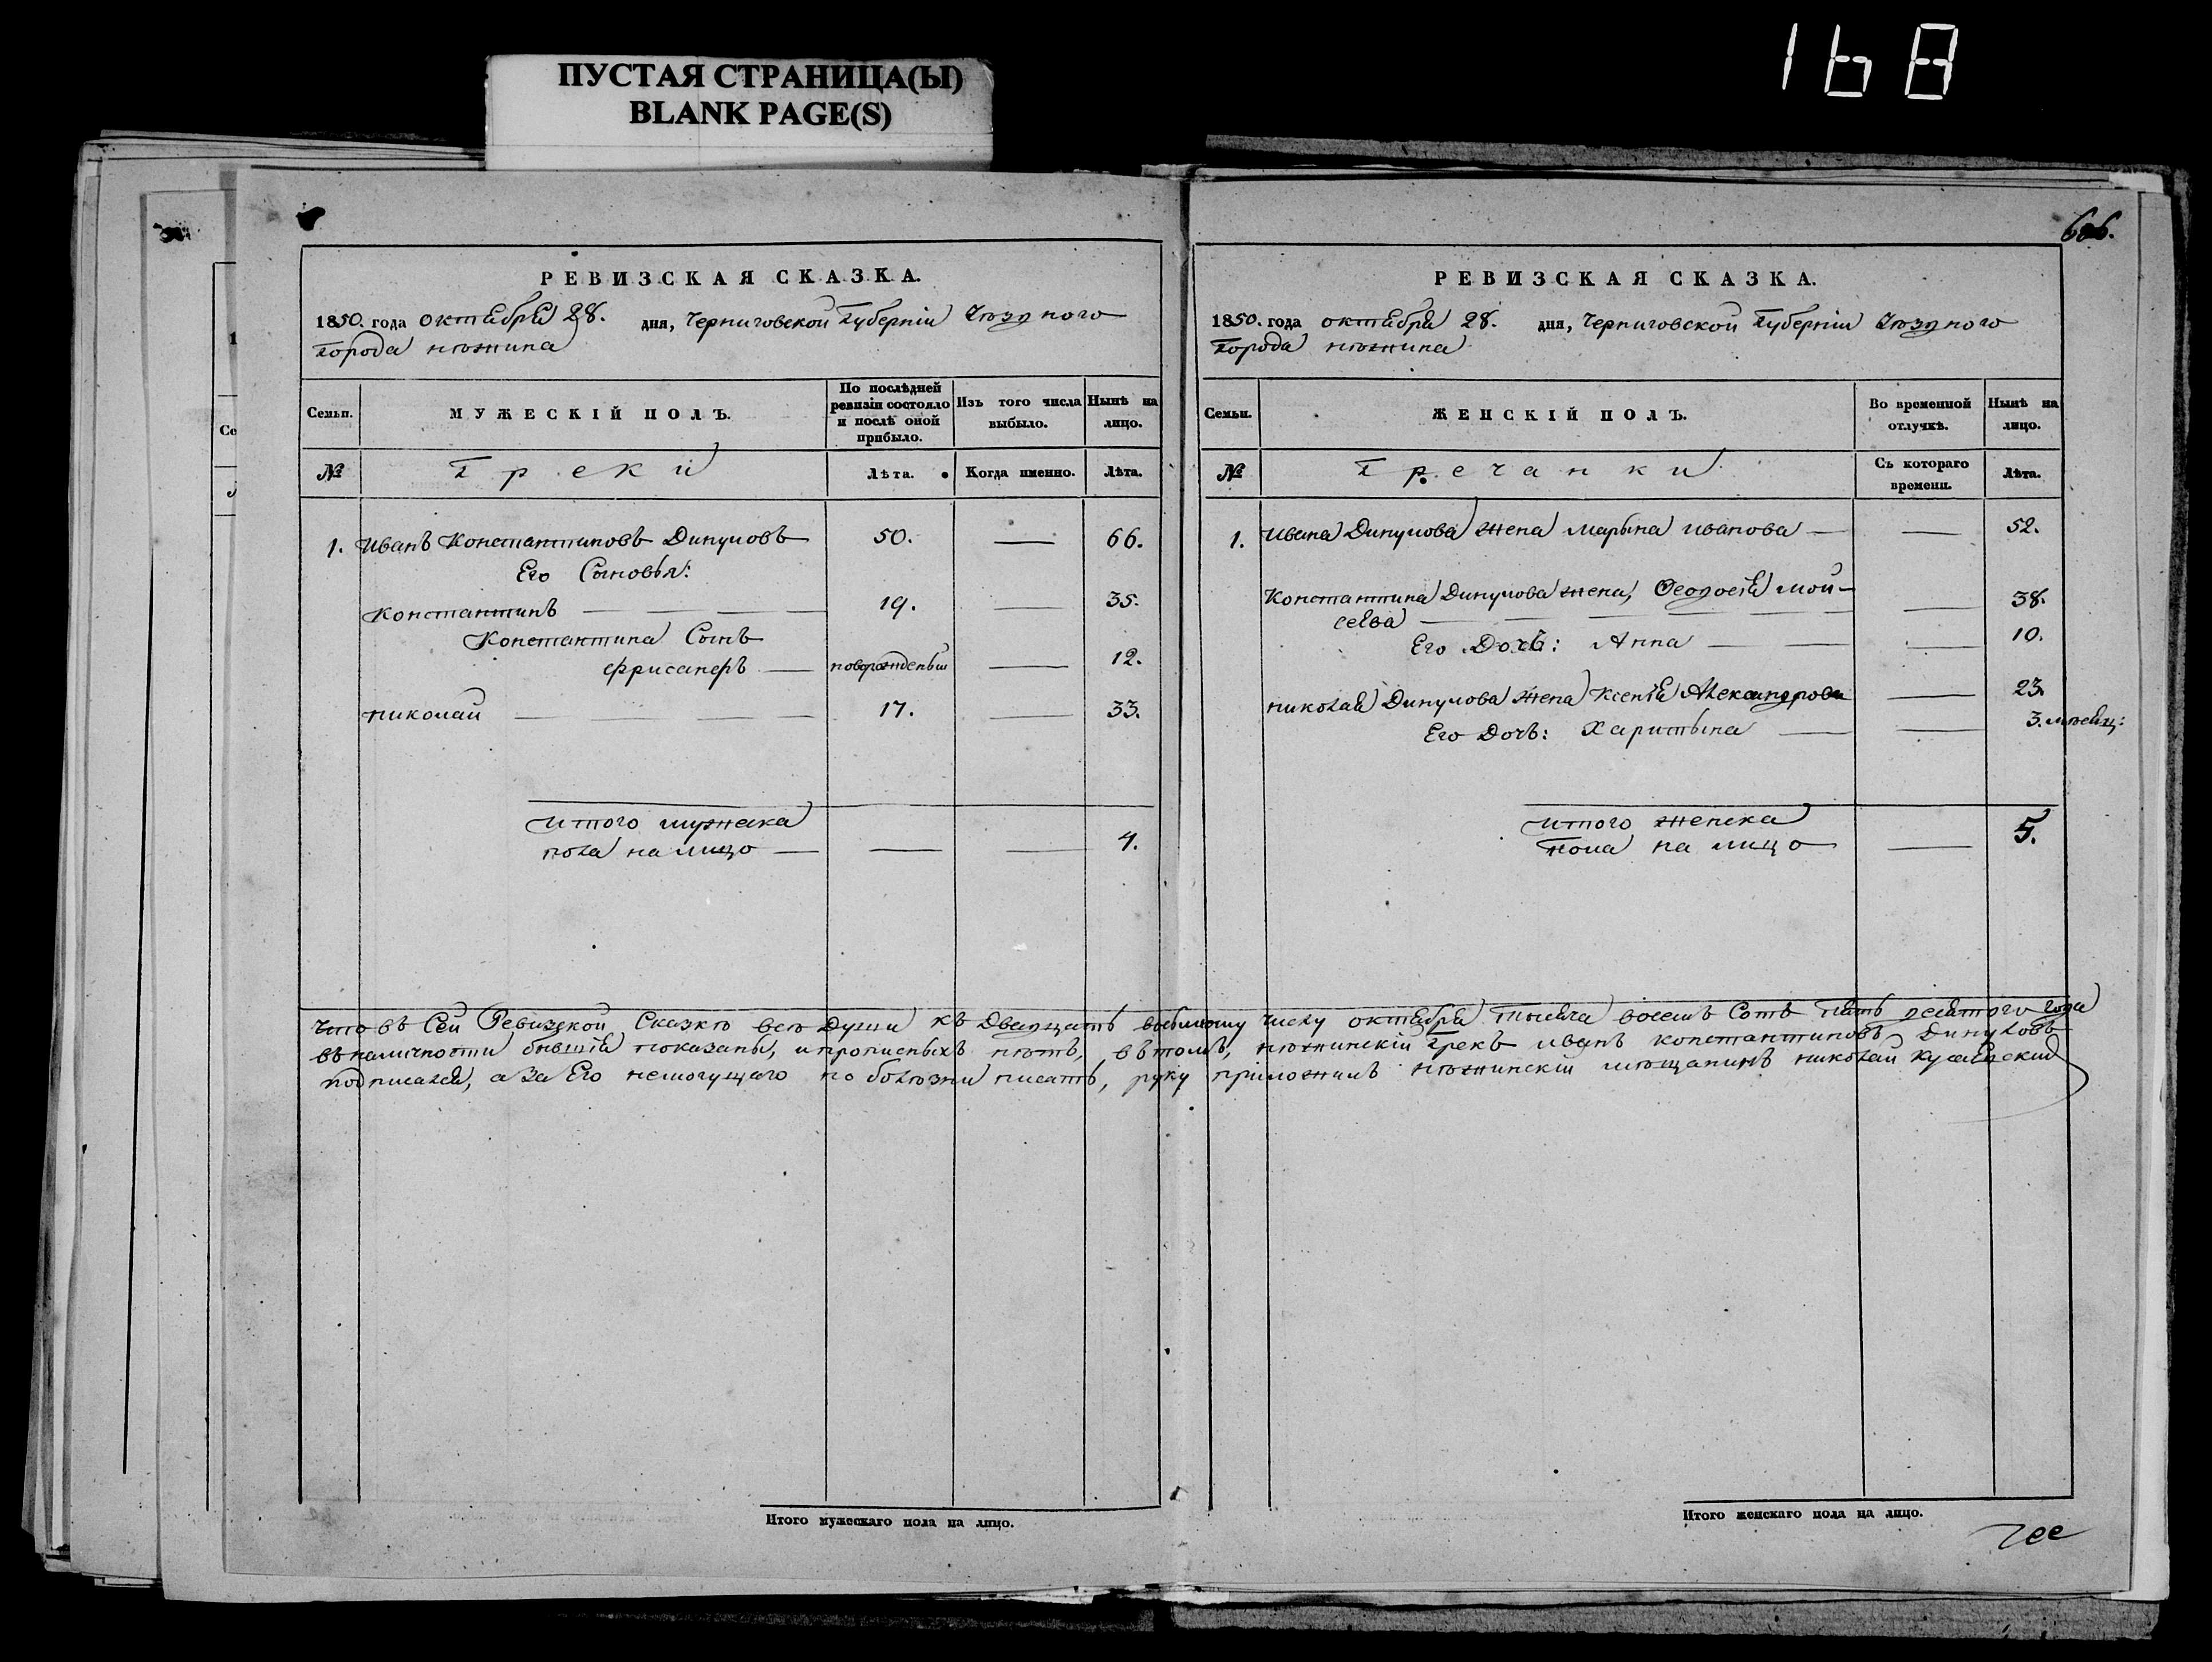 168
ПУСТАЯ СТРАНИЦА(Ы)
BLANK PAGE(S)
РЕВИЗСКАЯ СКАЗКА.
1850. года октября 28. дня, Черниговской Губерніи Уѣзднаго
Города Нѣжина
Семьи. МУЖЕСКІЙ ПОЛЪ. По послѣдней ревизіи состояло и послѣ оной прибыло. Изъ того числа выбыло. Нынѣ на лицо.
№ Греки Лѣта. Когда именно. Лѣта.
1. Иванъ Константиновъ Динуловъ 50. — 66.
Его Сыновья:
Константинъ — 19. — 35.
Константина Сынъ
Фрисанеръ — новорожденый — 12.
Николай — 17. — 33.
Итого мужеска
пола на лицо — — — 4.
Итого мужескаго пола на лицо.
606.
РЕВИЗСКАЯ СКАЗКА.
1850. года октября 28. дня, Черниговской Губерніи Уѣзднаго
Города Нѣжина
Семьи. ЖЕНСКІЙ ПОЛЪ. Во временной отлучкѣ. Нынѣ на лицо.
№ Гречанки Съ котораго времени. Лѣта.
1. Ивана Динулова жена Марьна Иванова — — 52.
Константина Динулова жена, Феодосія Мой-
сеева — — 38.
Его Дочь: Анна — — 10.
Николая Динулова жена Ксенія Александрова — 23.
Его Дочь: Харитына — — 3. мѣсяц:
Итого женска
пола на лицо — 5.
Что въ Сей Ревизской Сказкѣ всѣ Души къ Двадцать восьмому числу октября тысяча восемь Сотъ пять десятого года
въ наличности бывшія показаны, и прописныхъ нѣтъ, въ томъ, нѣжинскій Грекъ Иванъ Константиновъ Динуловъ
подписался, а За Его немогущаго по болѣзни писать, руку приложилъ нѣжинскій мѣщанинъ Николай
Итого женскаго пола на лицо.